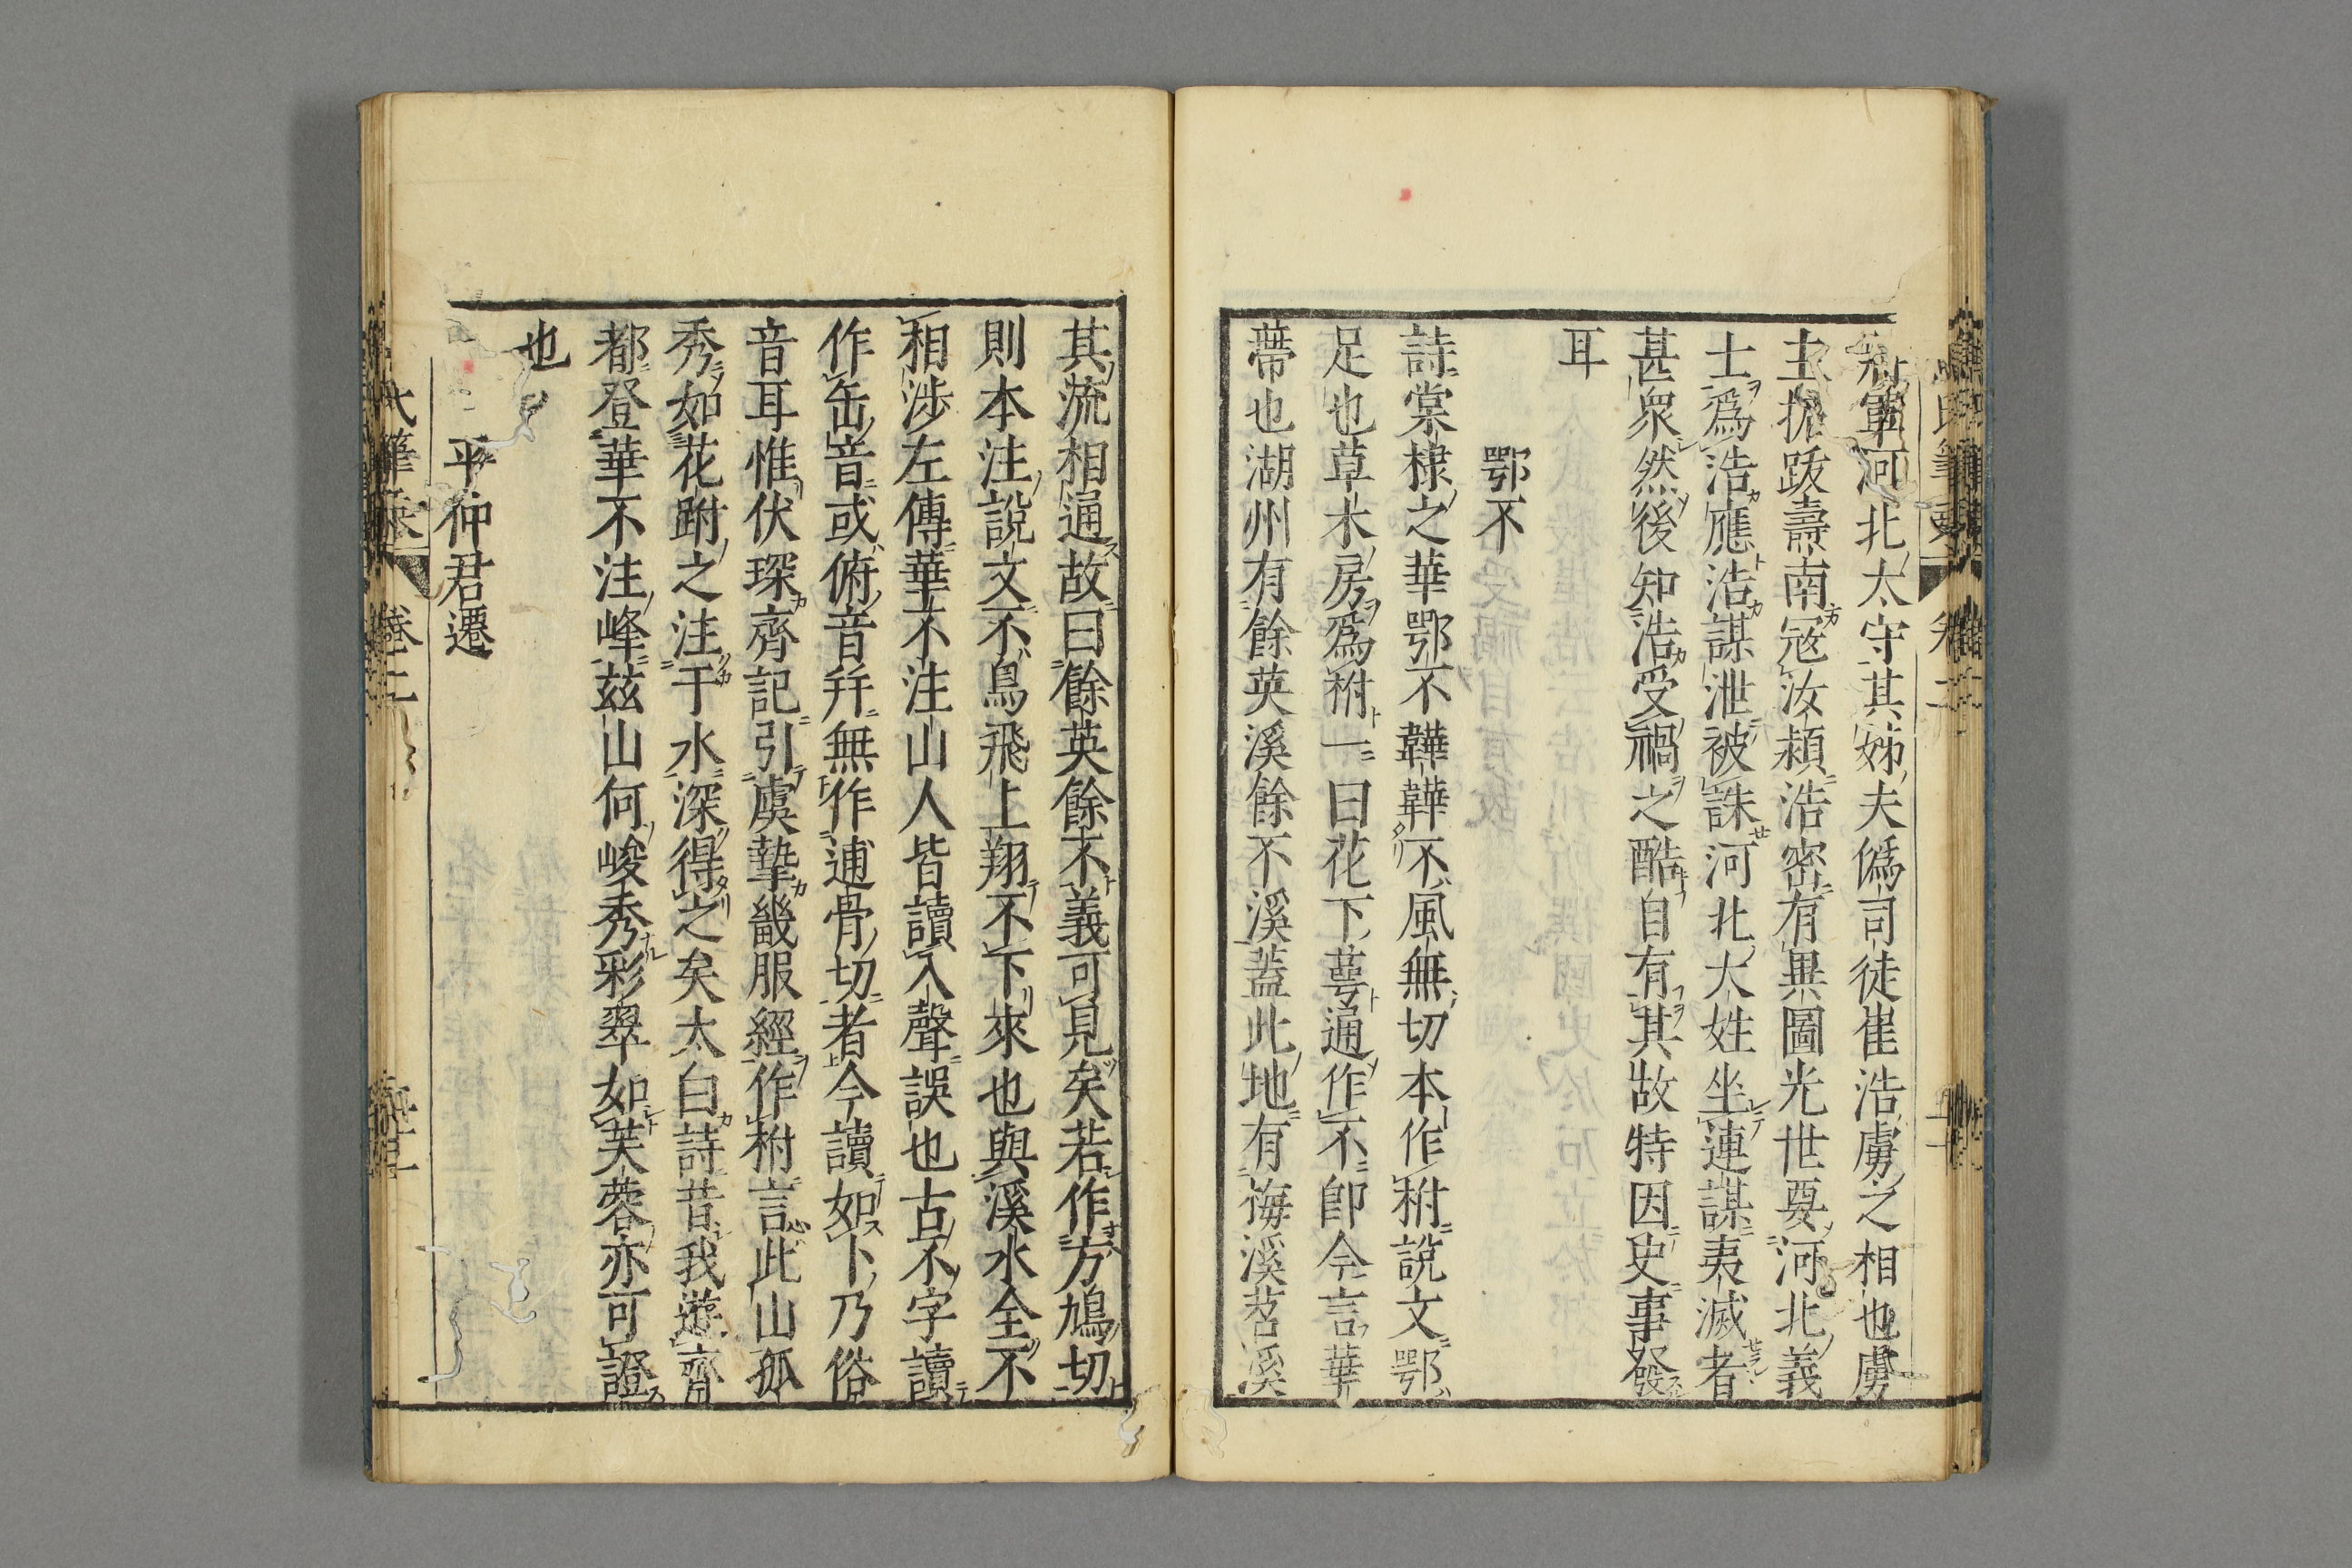 冠軍河北太守其姊夫僞司徒崔浩虜之相也虜
主拔跋壽南寇汝潁浩密有異圖光世要河北義
士爲浩應浩謀泄被誅河北大姓坐連謀夷滅者
甚衆然後知浩受禍之酷自有其故特因史事發
耳
鄂不
詩棠棣之華鄂不韡韡不風無切本作柎說文鄂
足也草木房爲柎一曰花下萼通作不卽今言華
蔕也湖州有餘英溪餘不溪蓋此地有梅溪苕溪
其流相通故曰餘英餘不義可見矣若作方鳩切
則本注說文不鳥飛上翔不下來也與溪水全不
相涉左傳華不注山人皆讀入聲誤也古不字讀
作缶音或俯音幷無作逋骨切者今讀如卜乃俗
音耳惟伏琛齊記引虞摯畿服經作柎言此山孤
秀如花跗之注于水深得之矣太白詩昔我遊齊
都登華不注峰茲山何峻秀彩翠如芙蓉亦可證
也
平仲君遷
卷二